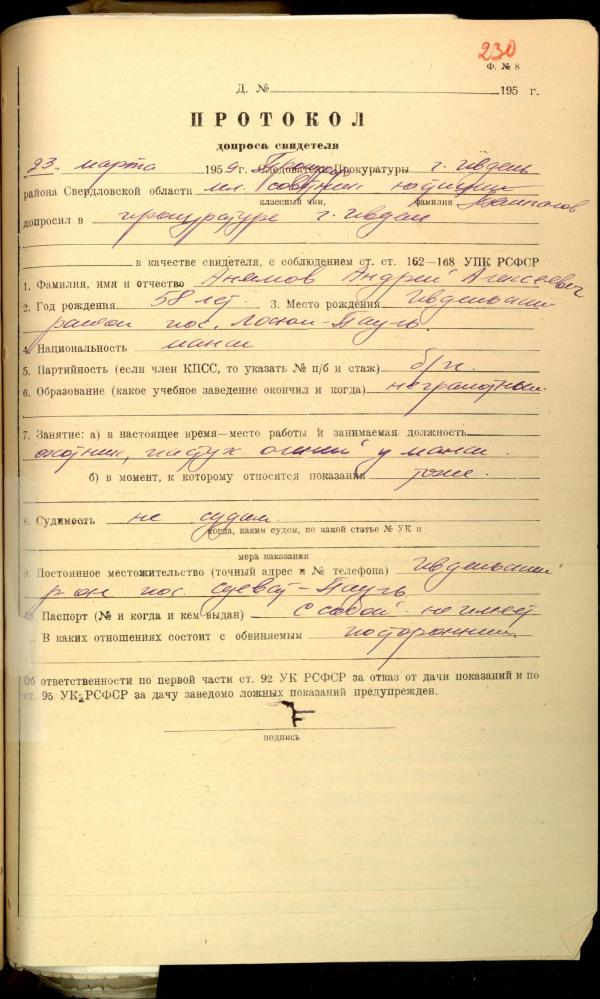 230
Ф. № 8
Д. № 195 г.
ПРОТОКОЛ
допроса свидетеля
„23„ марта 1959 г. Следователь Прокуратуры г. Ивдель
района Свердловской области мл. советник юстиции
классный чин, фамилия Темпалов
допросил в прокуратуре г. Ивдель
в качестве свидетеля, с соблюдением ст. ст. 162—168 УПК РСФСР
1. Фамилия, имя и отчество Анямов Андрей Алексеевич
2. Год рождения 58 лет. 3. Место рождения Ивдельский
район пос. -Пауль.
4. Национальность манси
5. Партийность (если член КПСС, то указать № п/б и стаж) б/п.
6. Образование (какое учебное заведение окончил и когда) неграмотный.
7. Занятие: а) в настоящее время—место работы и занимаемая должность
охотник, пастух оленей у манси.
б) в момент, к которому относятся показания тоже.
8. Судимость не судим.
когда, каким судом, по какой статье № УК и
мера наказания
9. Постоянное местожительство (точный адрес и № телефона) Ивдельский
р-он пос. -Пауль
10. Паспорт (№ и когда и кем выдан) с собой не имеет
В каких отношениях состоит с обвиняемым посторонний.
Об ответственности по первой части ст. 92 УК РСФСР за отказ от дачи показаний и по
ст. 95 УК РСФСР за дачу заведомо ложных показаний предупрежден.
подпись